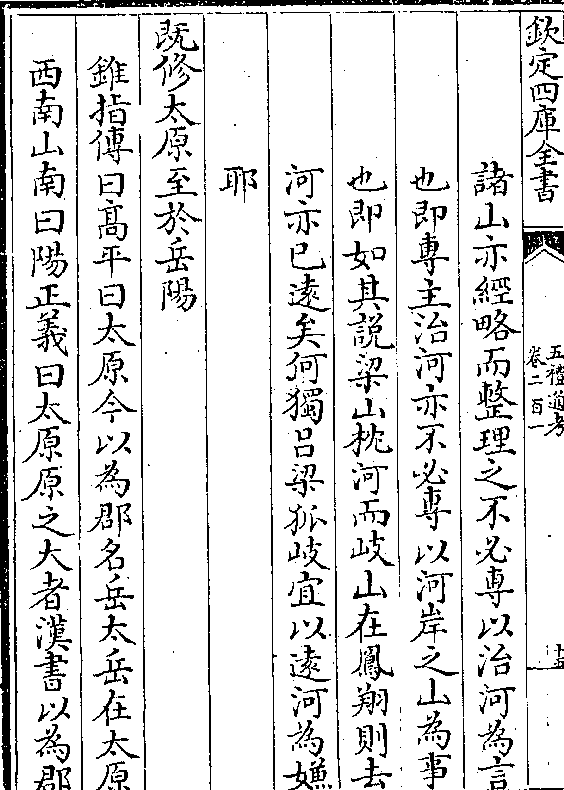 欽定四庫全書
五禮通考
卷二百一
十五
諸山亦經略而整理之不必專以治河為言
也即專主治河亦不必專以河岸之山為事
也即如其説梁山枕河而岐山在鳳翔則去
河亦已遠矣何獨吕梁狐岐宜以遠河為嫌
耶
既修太原至於岳陽
錐指傳曰髙平曰太原今以為郡名岳太岳在太原
西南山南曰陽正義曰太原原之大者漢書以為郡